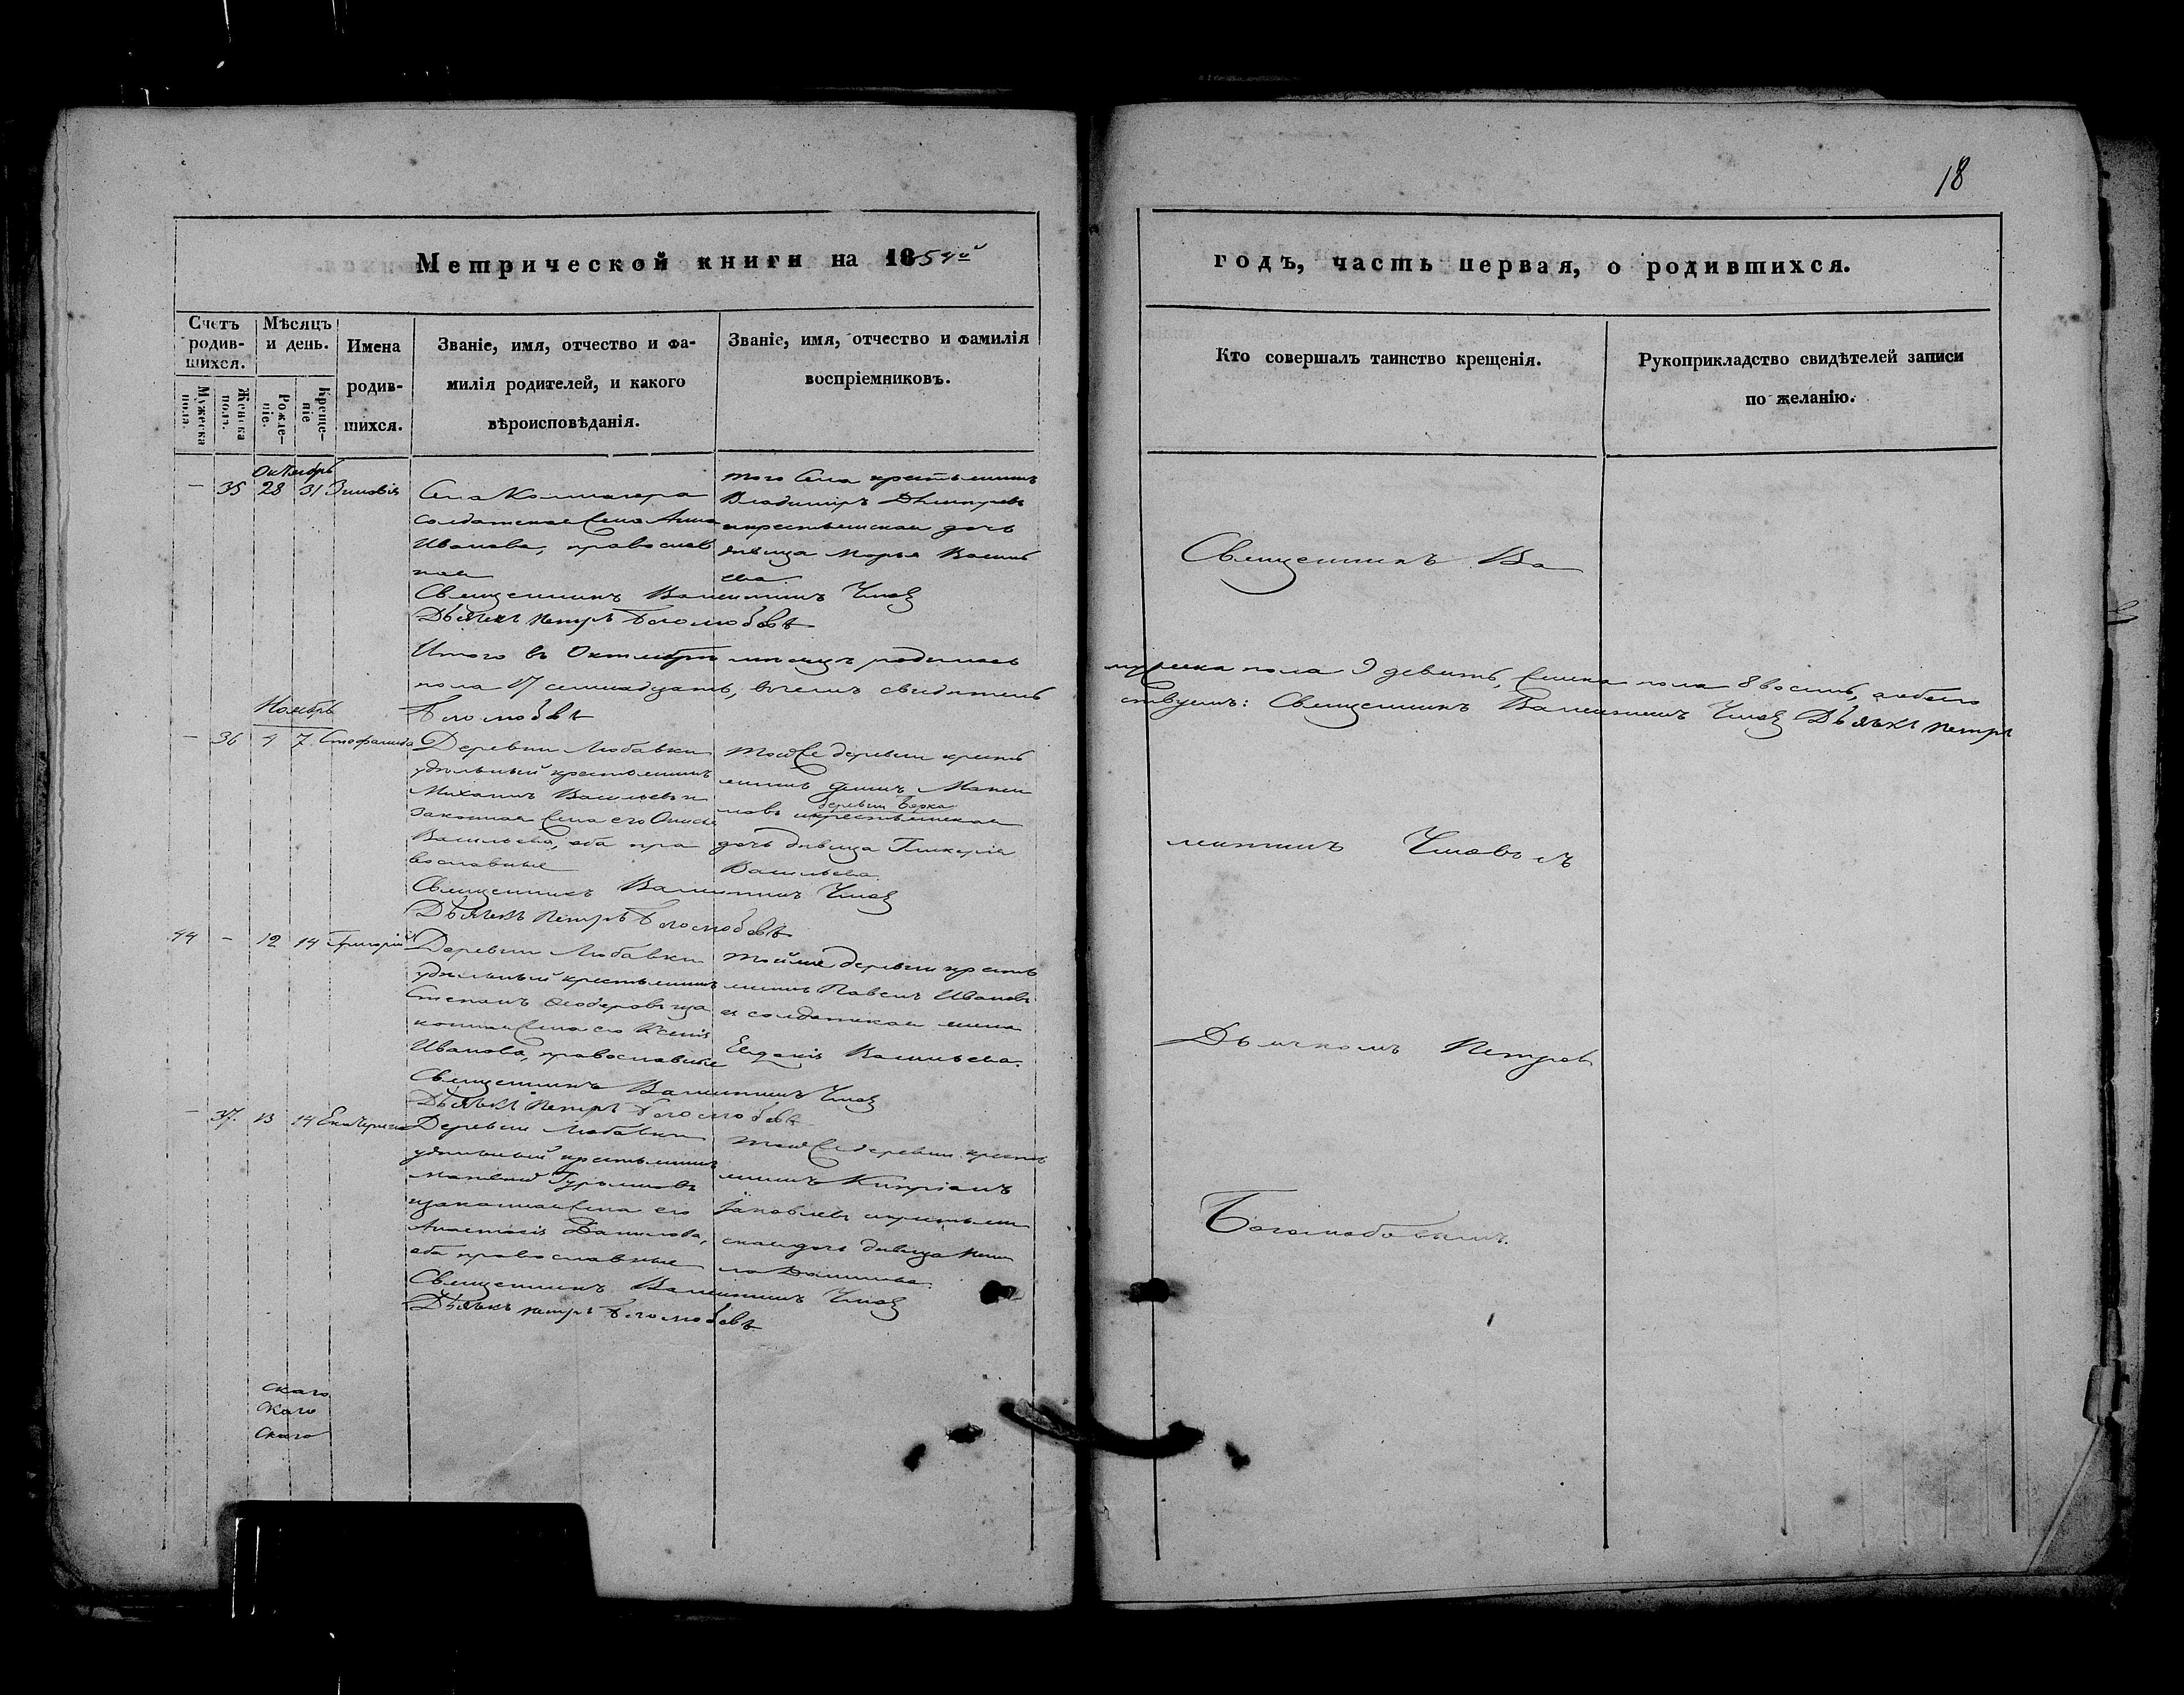 18
Метрической книги на 1854й
годъ, часть первая, о родившихся.
Счетъ родившихся.
Мужеска пола.
Женска пола.
Мѣсяцъ и день.
Рожденіе.
Крещеніе
Имена родившихся.
Званіе, имя, отчество и фамилія родителей, и какого вѣроисповѣданія.
Званіе, имя, отчество и фамилія воспріемниковъ.
Кто совершалъ таинство крещенія.
Рукоприкладство свидѣтелей записи по желанію.
Октябрь
– 35 28 31 Зиновія
Села
солдатская жена Анна
Иванова, православ
ная
того села крестьянинъ
Владимиръ Дмитріевъ
и крестьянская дочь
дѣвица Марья Василь
ева
Священникъ Валентинъ
Дьячекъ Петръ Боголюбовъ
Итого въ Октябрѣ мѣсяцѣ родилось
мужеска пола 9 девять, женска пола 8 восемь, обоего
пола 17 семнадцать, въ чемъ свидѣтель
ствуемъ: Священникъ Валентинъ Дьячекъ Петръ
Боголюбовъ
Ноябрь
– 36 4 7
Деревни Любавки
удѣльный крестьянинъ
Михаилъ Васильевъ и
законная жена его
Васильева, оба пра
вославные
той же деревни кресть
янинъ
деревни
и крестьянская
дочь дѣвица Гликерія
Васильева.
Священникъ Валентинъ
Дьячекъ Петръ Боголюбовъ
44 – 12 14 Григорій
Деревни Любавки
удѣльный крестьянинъ
Степанъ Ѳедоровъ и за
конная жена его Ксенія
Иванова, православные
той же деревни кресть
янинъ Павелъ Ивановъ
и солдатская жена
Евдокія Васильева.
Священникъ Валентинъ
Дьячекъ Петръ Боголюбовъ
– 37. 13 14 Екатерина
Деревни Любавки
удѣльный крестьянинъ
Матвей
и законная жена его
Анастасія Данилова,
оба православные
той же деревни кресть
янинъ Кипріанъ
Іаковлевъ и крестьян
ская дочь дѣвица
Священникъ Валентинъ
Дьячекъ Петръ Боголюбовъ
скаго
каго
скаго
Священникъ Ва
лентинъ съ
Дьячкомъ Петромъ
Боголюбовымъ.